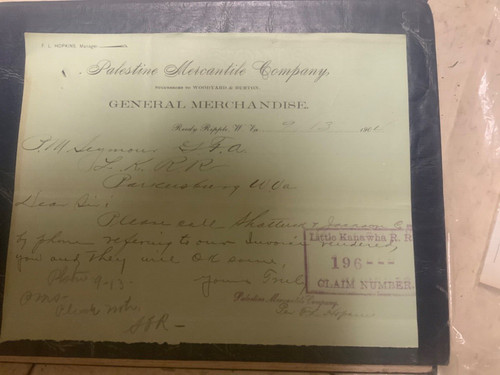 F. L. HOPKINS, Manager
Palestine Mercantile Company,
SUCCESSORS TO WOODYARD &
GENERAL MERCHANDISE.
Reedy Ripple, W. Va. 9 13 190
T. M. Seymour G F A
L. K. R R
Parkersburg W Va
Dear Sir:
Please call Shattuck & Jackson Co
by phone refering to our Invoice rendered
you and they will O.K. same,
Yours Truly
Palestine Mercantile Company
Per F L Hopkins
Phoned 9-13
Little Kanawha R. R.
196---
CLAIM NUMBER.